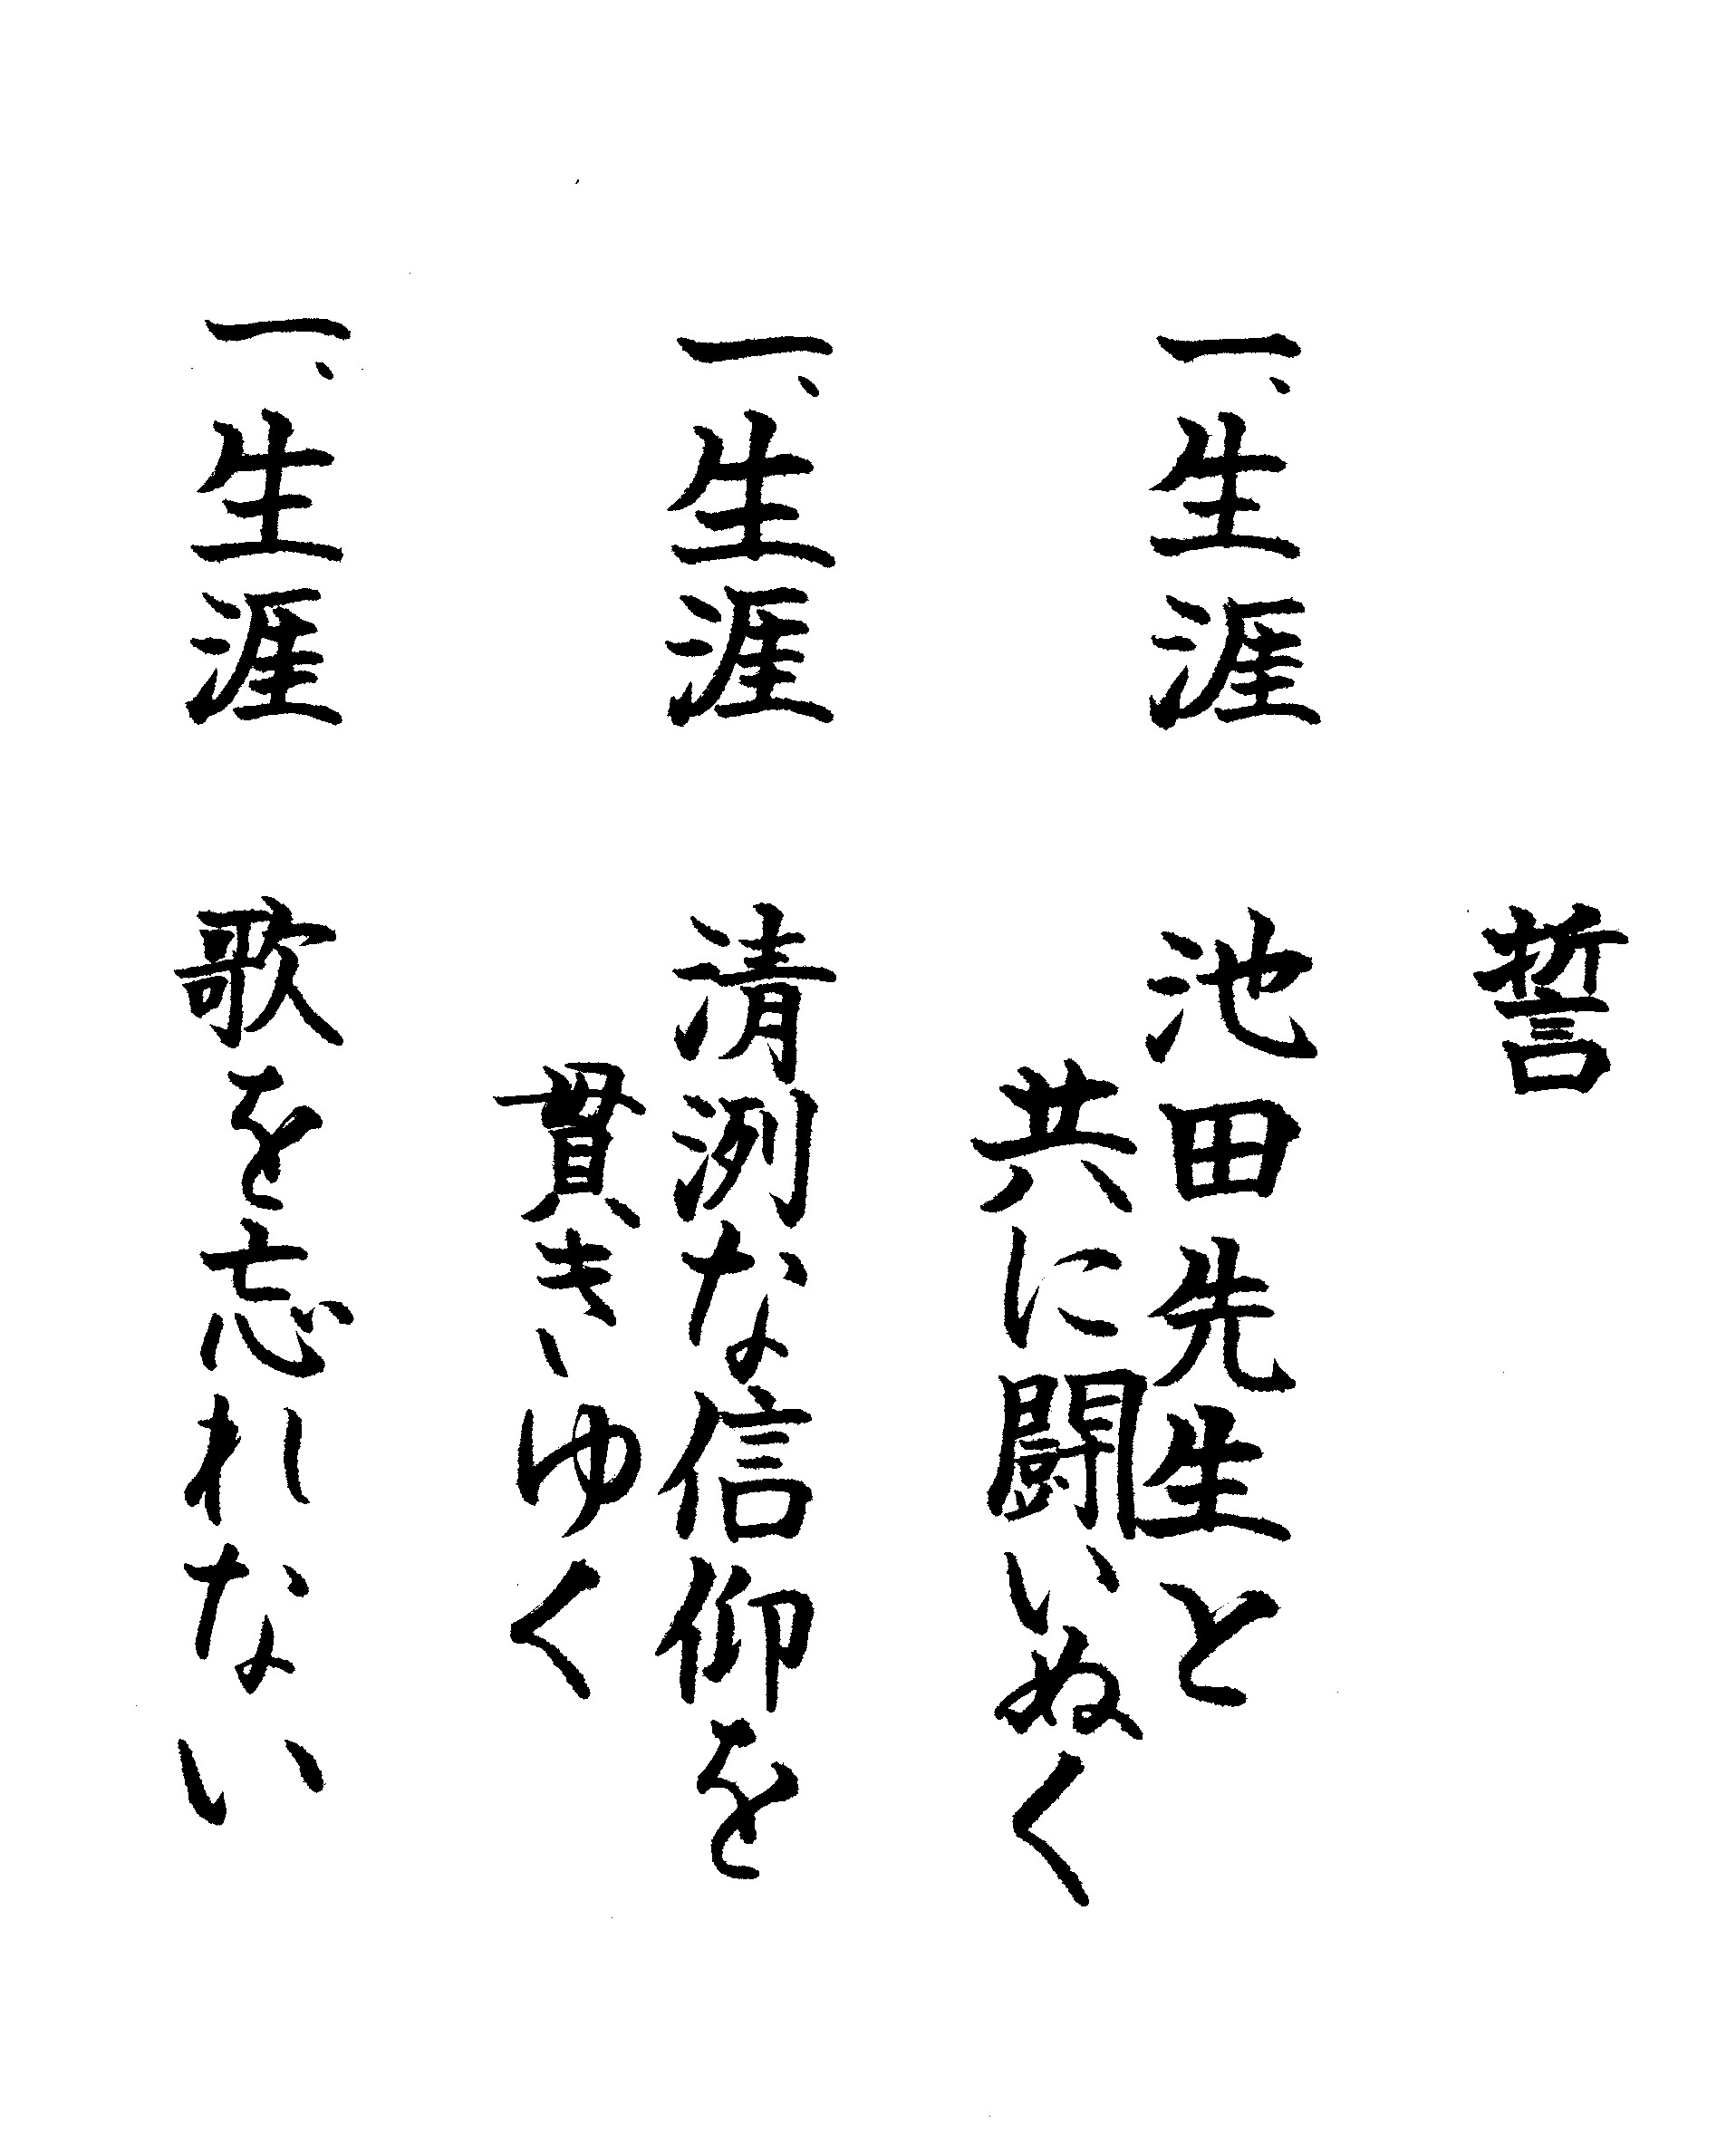 誓
一、生涯 池田先生と
共に闘いぬく
一、生涯 清冽な信仰を
貫きゆく
一、生涯 歌を忘れない